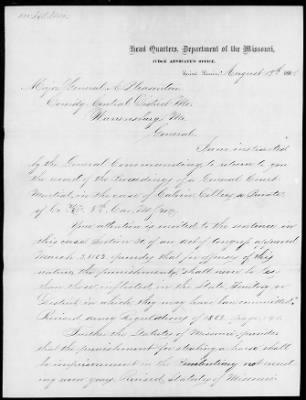 Head Quarters, Department of the Missouri,
JUDGE ADVOCATE'S OFFICE.
August 19th 186
Major General A. Pleasonton
Comdg Central District Mo.
Warrensburg, Mo.
General
I am instructed
by the General Commanding to return to you
the record of the Proceedings of a General Court
Martial, in the case of Calvin a Private
of Co 8th Cav. Mo
Your attention is invited to the sentence in
this case. Section 30 of an act of Congress approved
March 3, 1863. provides that for offenses of this
nature, the punishments "shall never be less
than those inflicted in the State, Territory or
District in which they may have been committed."
Revised Army Regulations of 1863. page
the Statutes of Missouri, provides
that the punishment for stealing a horse shall
be imprisonment in the Penitentiary not exceed-
ing seven years, Revised Statutes of Missouri